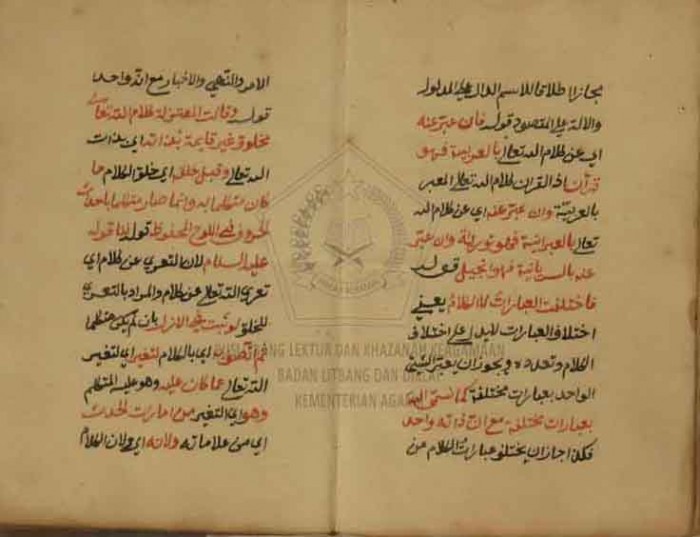 مجازا اطلاقا للاسم الدال على المدلول
والالة على المقصود قوله فان عبر عنه
اي عن كلام الله تعالى بالعربية فهو
قرآن اذ القرآن كلام الله تعالى المعبر
بالعربية وان عبر عنه اي عن كلام الله
تعالى بالعبرانية فهو تورية وان عبر
عنه بالسريانية فهو انجيل قوله
فاختلفت العبارات لا الكلام يعني
اختلاف العبارات لا يدل على اختلاف
الكلام وتعدده ويجوز ان يعبر الشيء
الواحد بعبارات مختلفة كما نسمي الله
بعبارات مختلفة مع ان ذاته واحد
فكذا جاز ان يختلف عبارات الكلام من
الامر والنهي والاخبار مع انه واحد
قوله وقالت المعتزلة كلام الله تعالى
مخلوق غير قايمة بذاته اي بذات
الله تعالى وقبل خلق اي خلق الكلام ما
كان متكلما به وانما صار متكلما باحداث
الحروف في اللوح المحفوظ قوله لنا قوله
عليه السلام لان التعري عن كلام اي
تعري الله تعالى عن كلام والمراد بالتعري
للخلق لو ثبت في الازل بان لم يكن متكلما
ثم اتصف به اي بالكلام لتغير اي لتغير
الله تعالى عما كان عليه وهو عليه المتكلم
وهو اي التغير من امارات الحدث
اي من علاماته ولانه اي ولان الكلام
PUSLITBANG LEKTUR DAN KHAZANAH KEAGAMAAN
BADAN LITBANG DAN DIKLAT
KEMENTERIAN AGAMA